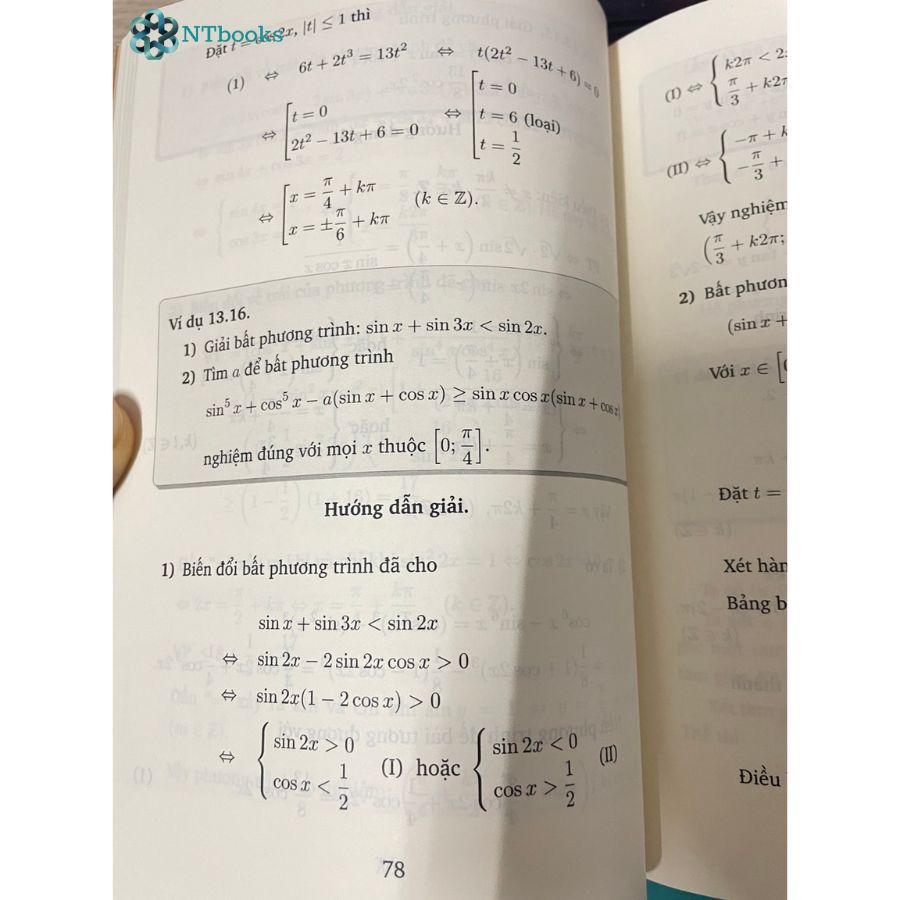 NTbooks
Đặt t = cos 2x, |t| ≤ 1 thì
(1) ⇔ 6t + 2t³ = 13t² ⇔ t(2t² − 13t + 6) = 0
⇔ [t = 0
2t² − 13t + 6 = 0
⇔ [t = 0
t = 6 (loại)
t = 1/2
⇔ [x = π/4 + kπ
x = ±π/6 + kπ
(k ∈ ℤ).
Ví dụ 13.16.
1) Giải bất phương trình: sin x + sin 3x < sin 2x.
2) Tìm a để bất phương trình
sin⁵ x + cos⁵ x − a(sin x + cos x) ≥ sin x cos x(sin x + cos x)
nghiệm đúng với mọi x thuộc [0; π/4].
Hướng dẫn giải.
1) Biến đổi bất phương trình đã cho
sin x + sin 3x < sin 2x
⇔ sin 2x − 2 sin 2x cos x > 0
⇔ sin 2x(1 − 2 cos x) > 0
⇔ {sin 2x > 0
cos x < 1/2
(I) hoặc {sin 2x < 0
cos x > 1/2
(II)
78
(I) ⇔ {k2π < 2
π/3 + k2π
(II) ⇔ {−π + k
−π/3 +
Vậy nghiệm
(π/3 + k2π;
2) Bất phươn
(sin x +
Với x ∈ [0
Đặt t =
Xét hàn
Bảng b
Điều